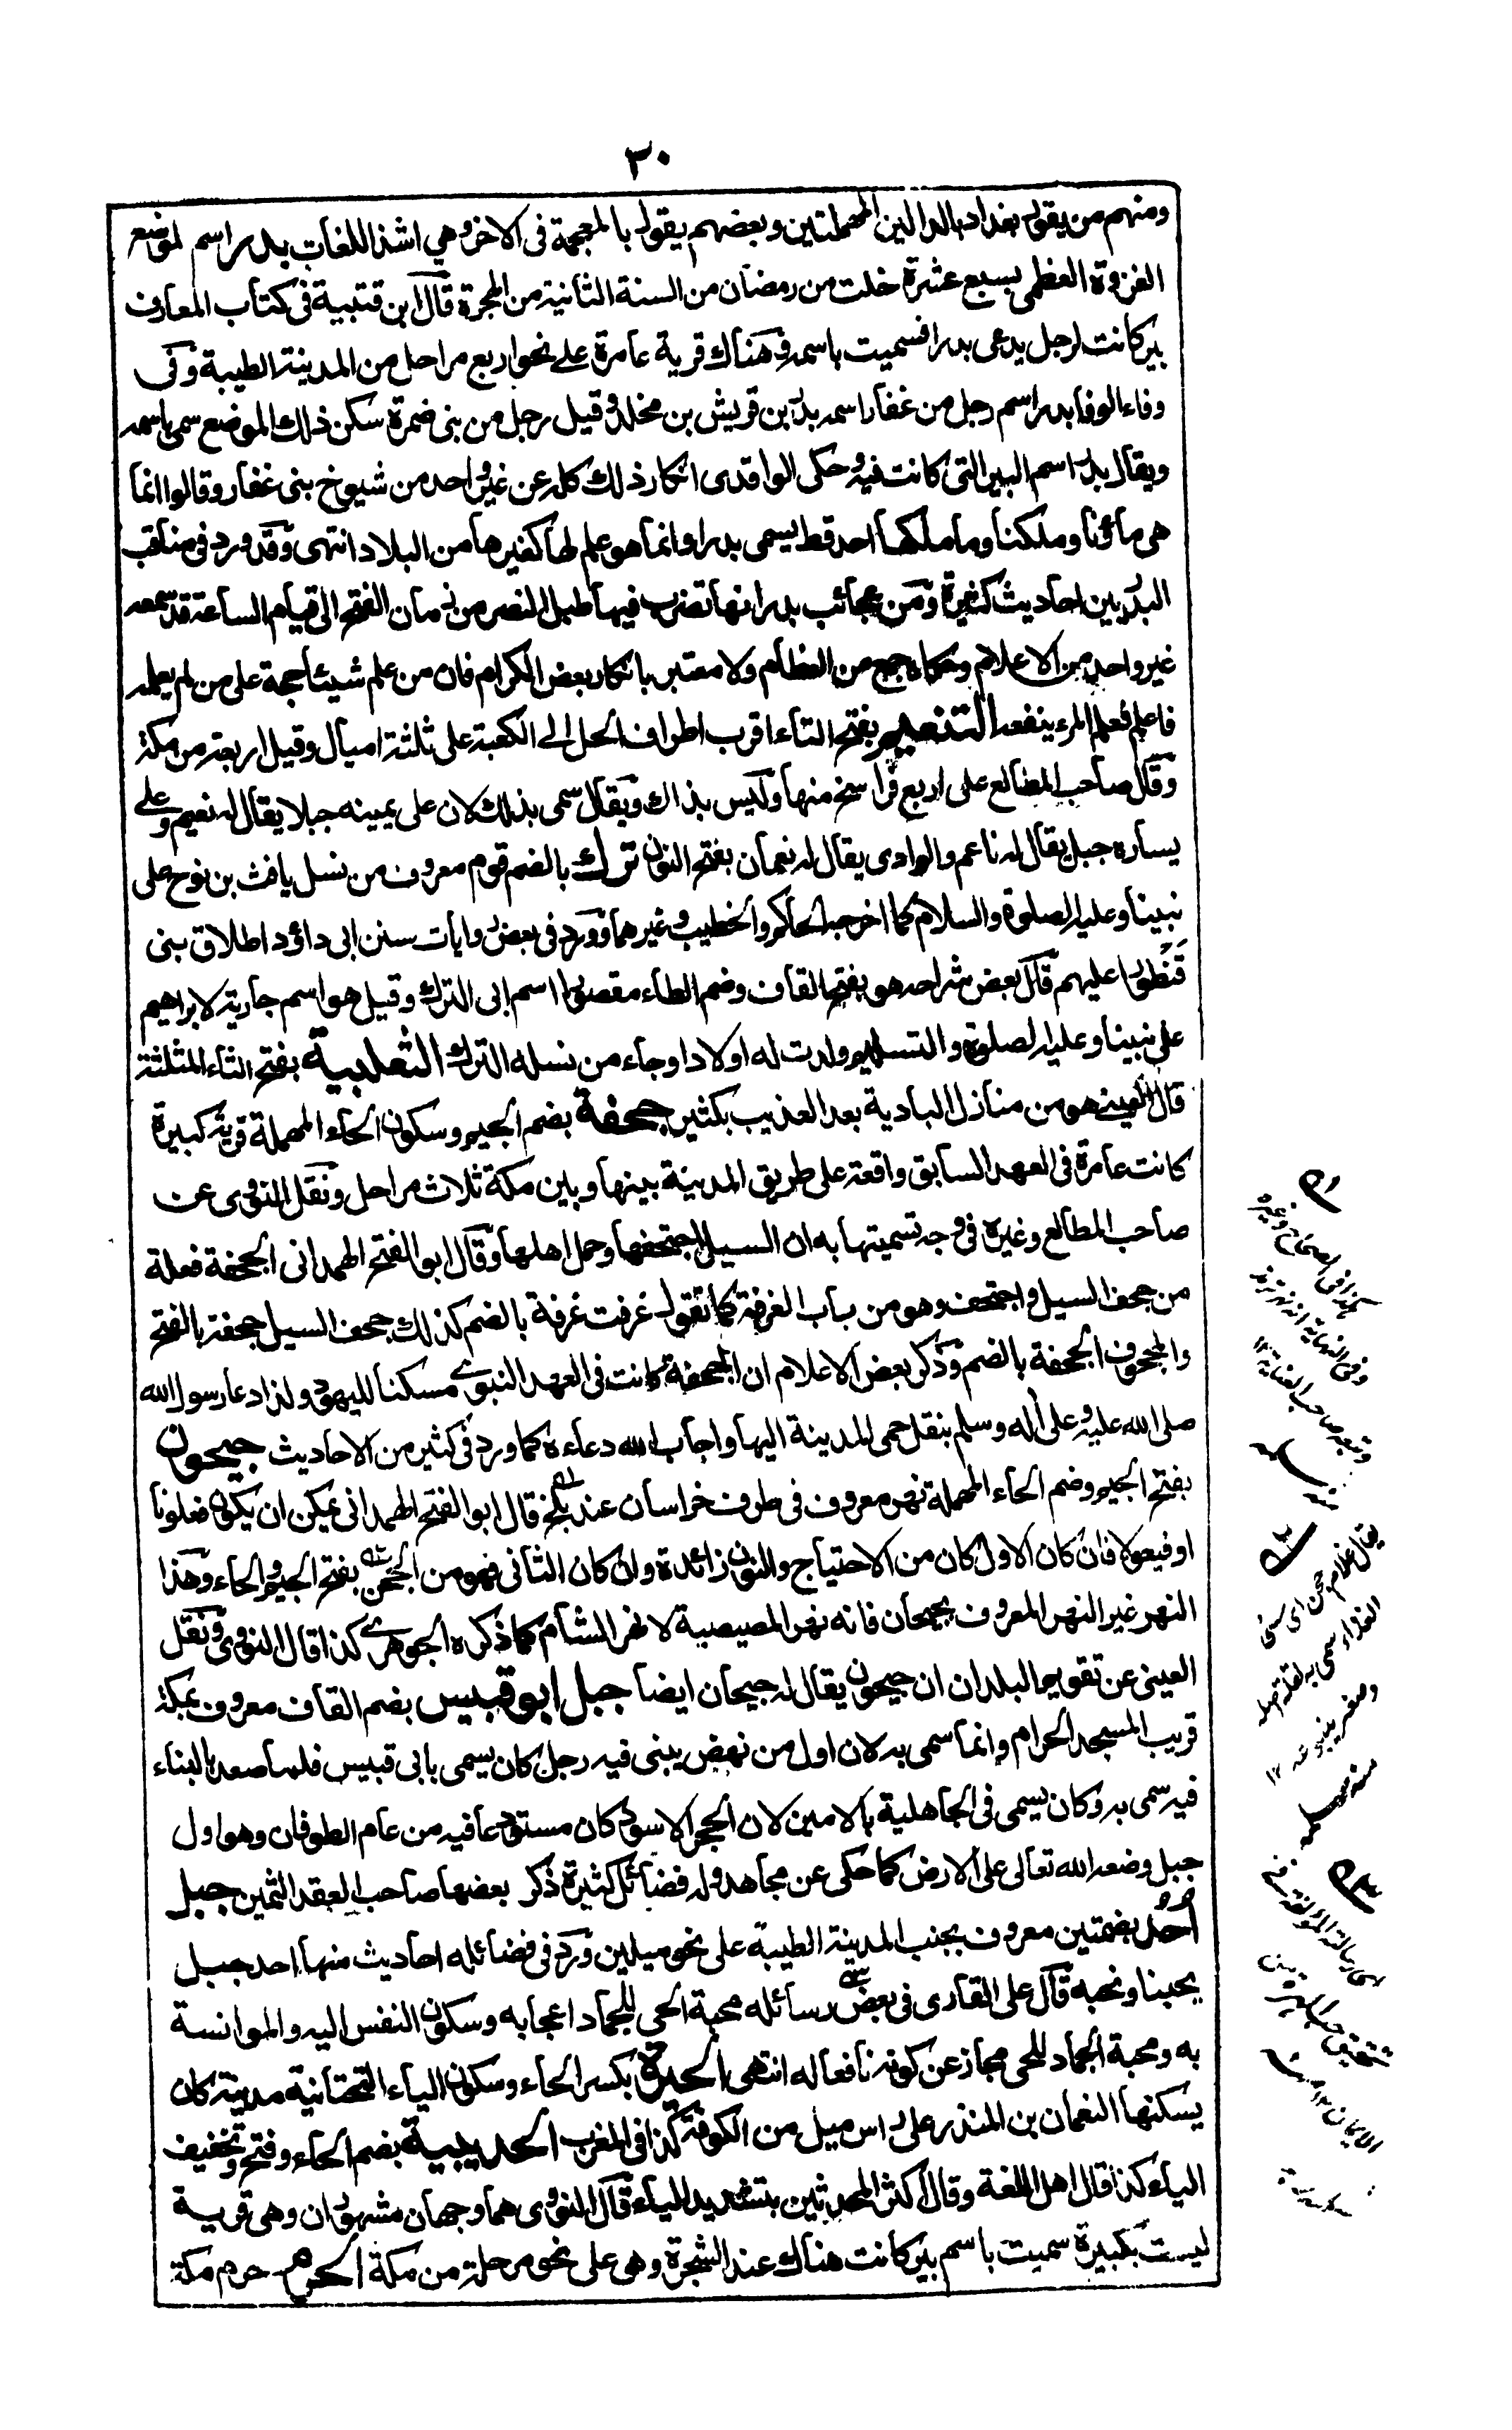 ٣٠
ومنهم من يقول بغداد بالدالين المهملتين وبعضهم يقول بالمعجمة فى الاخر وهي اشذ اللغات بدر اسم لموضع
الغزوة العظمى بسبع عشرة خلت من رمضان من السنة الثانية من الهجرة قال ابن قتيبة فى كتاب المعارف
بير كانت لرجل يدعى بدرا فسميت باسمه وهناك قرية عامرة على نحو اربع مراحل من المدينة الطيبة وفى
وفاء الوفا بدر اسم رجل من غفار اسمه بدر بن قريش بن مخلد وقيل رجل من بنى ضمرة سكن ذلك الموضع سمى باسمه
ويقال بدر اسم البير التى كانت فيه وحكى الواقدى انكار ذلك كله عن غير واحد من شيوخ بنى غفار وقالوا انما
هى ماؤنا وملكنا وما ملكها احد قط يسمى بدرا وانما هو علم لها كغيرها من البلاد انتهى وقد ورد فى مناقب
البدريين احاديث كثيرة ومن عجائب بدر انها تضرب فيها طبل النصر من زمان الفتح الى قيام الساعة قد سمعه
غير واحد من الاعلام وحكاه جمع من العظام ولا معتبر بانكار بعض الكرام فان من علم شيئا حجة على من لم يعلمه
فاعلم فعلم المرء ينفعه التنعيم بفتح التاء اقرب اطراف الحل الى الكعبة على ثلثة اميال وقيل اربعة من مكة
وقال صاحب المطالع على اربع فراسخ منها وليس بذاك ويقال سمى بذلك لان على يمينه جبلا يقال له نعيم وعلى
يساره جبل يقال له ناعم والوادى يقال له نعمان بفتح النون ترك بالضم قوم معروف من نسل يافث بن نوح على
نبينا وعليه الصلوة والسلام كما اخرجه الحاكم والخطيب وغيرهما وورد فى بعض روايات سنن ابى داؤد اطلاق بنى
قنطورا عليهم قال بعض شراحه هو بفتح القاف وضم الطاء مقصورا اسم ابى الترك وقيل هو اسم جارية لابراهيم
على نبينا وعليه الصلوة والتسليم ولدت له اولادا وجاء من نسله الترك الثعلبية بفتح الثاء المثلثة
قال العينى هو من منازل البادية بعد العذيب بكثير جحفة بضم الجيم وسكون الحاء المهملة قرية كبيرة
كانت عامرة فى العهد السابق واقعة على طريق المدينة بينها وبين مكة ثلاث مراحل ونقل النووى عن
صاحب المطالع وغيره فى وجه تسميتها به ان السيل اجتحفها وحمل اهلها وقال ابو الفتح الهمدانى الجحفة فعلة
من جحف السيل واجتحف وهو من باب الغرفة كما تقول غرفت غرفة بالضم كذلك جحف السيل جحفة بالفتح
والمجحوف الجحفة بالضم وذكر بعض الاعلام ان الجحفة كانت فى العهد النبوى مسكنا لليهود ولذا دعا رسول الله
صلى الله عليه وعلى اله وسلم بنقل حمى المدينة اليها واجاب الله دعاءه كما ورد فى كثير من الاحاديث جيحون
بفتح الجيم وضم الحاء المهملة نهر معروف فى طرف خراسان عند بلخ قال ابو الفتح الهمدانى يمكن ان يكون فعلونا
او فيعولا فان كان الاول كان من الاحتياج والنون زائدة وان كان الثانى فهو من الجحن بفتح الجيم والحاء وهذا
النهر غير النهر المعروف بجيحان فانه نهر المصيصة لا نهر الشام كما ذكره الجوهرى كذا قال النووى ونقل
العينى عن تقويم البلدان ان جيحون يقال له جيحان ايضا جبل ابو قبيس بضم القاف معروف بمكة
قريب المسجد الحرام وانما سمى به لان اول من نهض يبنى فيه رجل كان يسمى بابى قبيس فلما صعد بالبناء
فيه سمى به وكان يسمى فى الجاهلية بالامين لان الحجر الاسود كان مستودعا فيه من عام الطوفان وهو اول
جبل وضعه الله تعالى على الارض كما حكى عن مجاهد وله فضائل كثيرة ذكر بعضها صاحب العقد الثمين جبل
أحُد بضمتين معروف بجنب المدينة الطيبة على نحو ميلين ورد فى فضائله احاديث منها احد جبل
يحبنا ونحبه قال على القارى فى بعض رسائله محبة الحى للجماد اعجابه وسكون النفس اليه والموانسة
به ومحبة الجماد للحى مجاز عن كونه نافعا له انتهى الحيرة بكسر الحاء وسكون الياء التحتانية مدينة كان
يسكنها النعمان بن المنذر على راس ميل من الكوفة كذا فى المغرب الحديبية بضم الحاء وفتح وتخفيف
الياء كذا قال اهل اللغة وقال اكثر المحدثين بتشديد الياء قال النووى هما وجهان مشهوران وهى قرية
ليست بكبيرة سميت باسم بير كانت هناك عند الشجرة وهى على نحو مرحلة من مكة الحرم حرم مكة
هكذا فى الصحاح وغيره
وفى النهاية انه نهر ترمذ
وتبعه صاحب العناية ١٢
يقال غلام جحن اى سئ
الغذاء سمى به لقلة